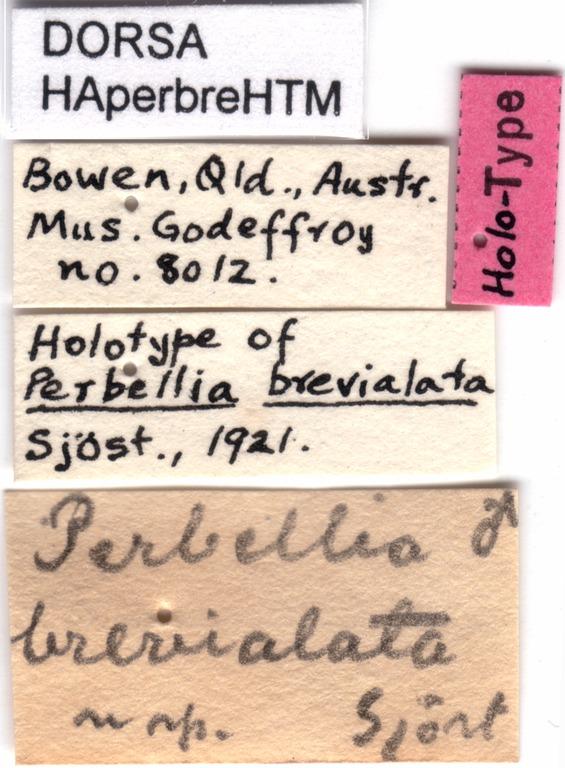 DORSA
HAperbreHTM
Holo-Type
Bowen, Qld., Austr.
Mus. Godeffroy
no. 8012.
Holotype of
Perbellia brevialata
Sjöst., 1921.
Perbellia ♂
brevialata
n sp. Sjöst